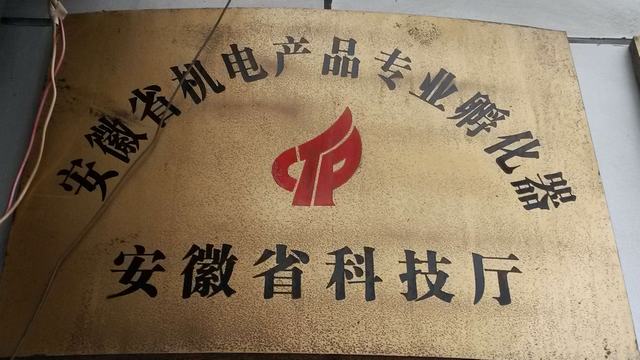 安徽省机电产品专业孵化器
安徽省科技厅